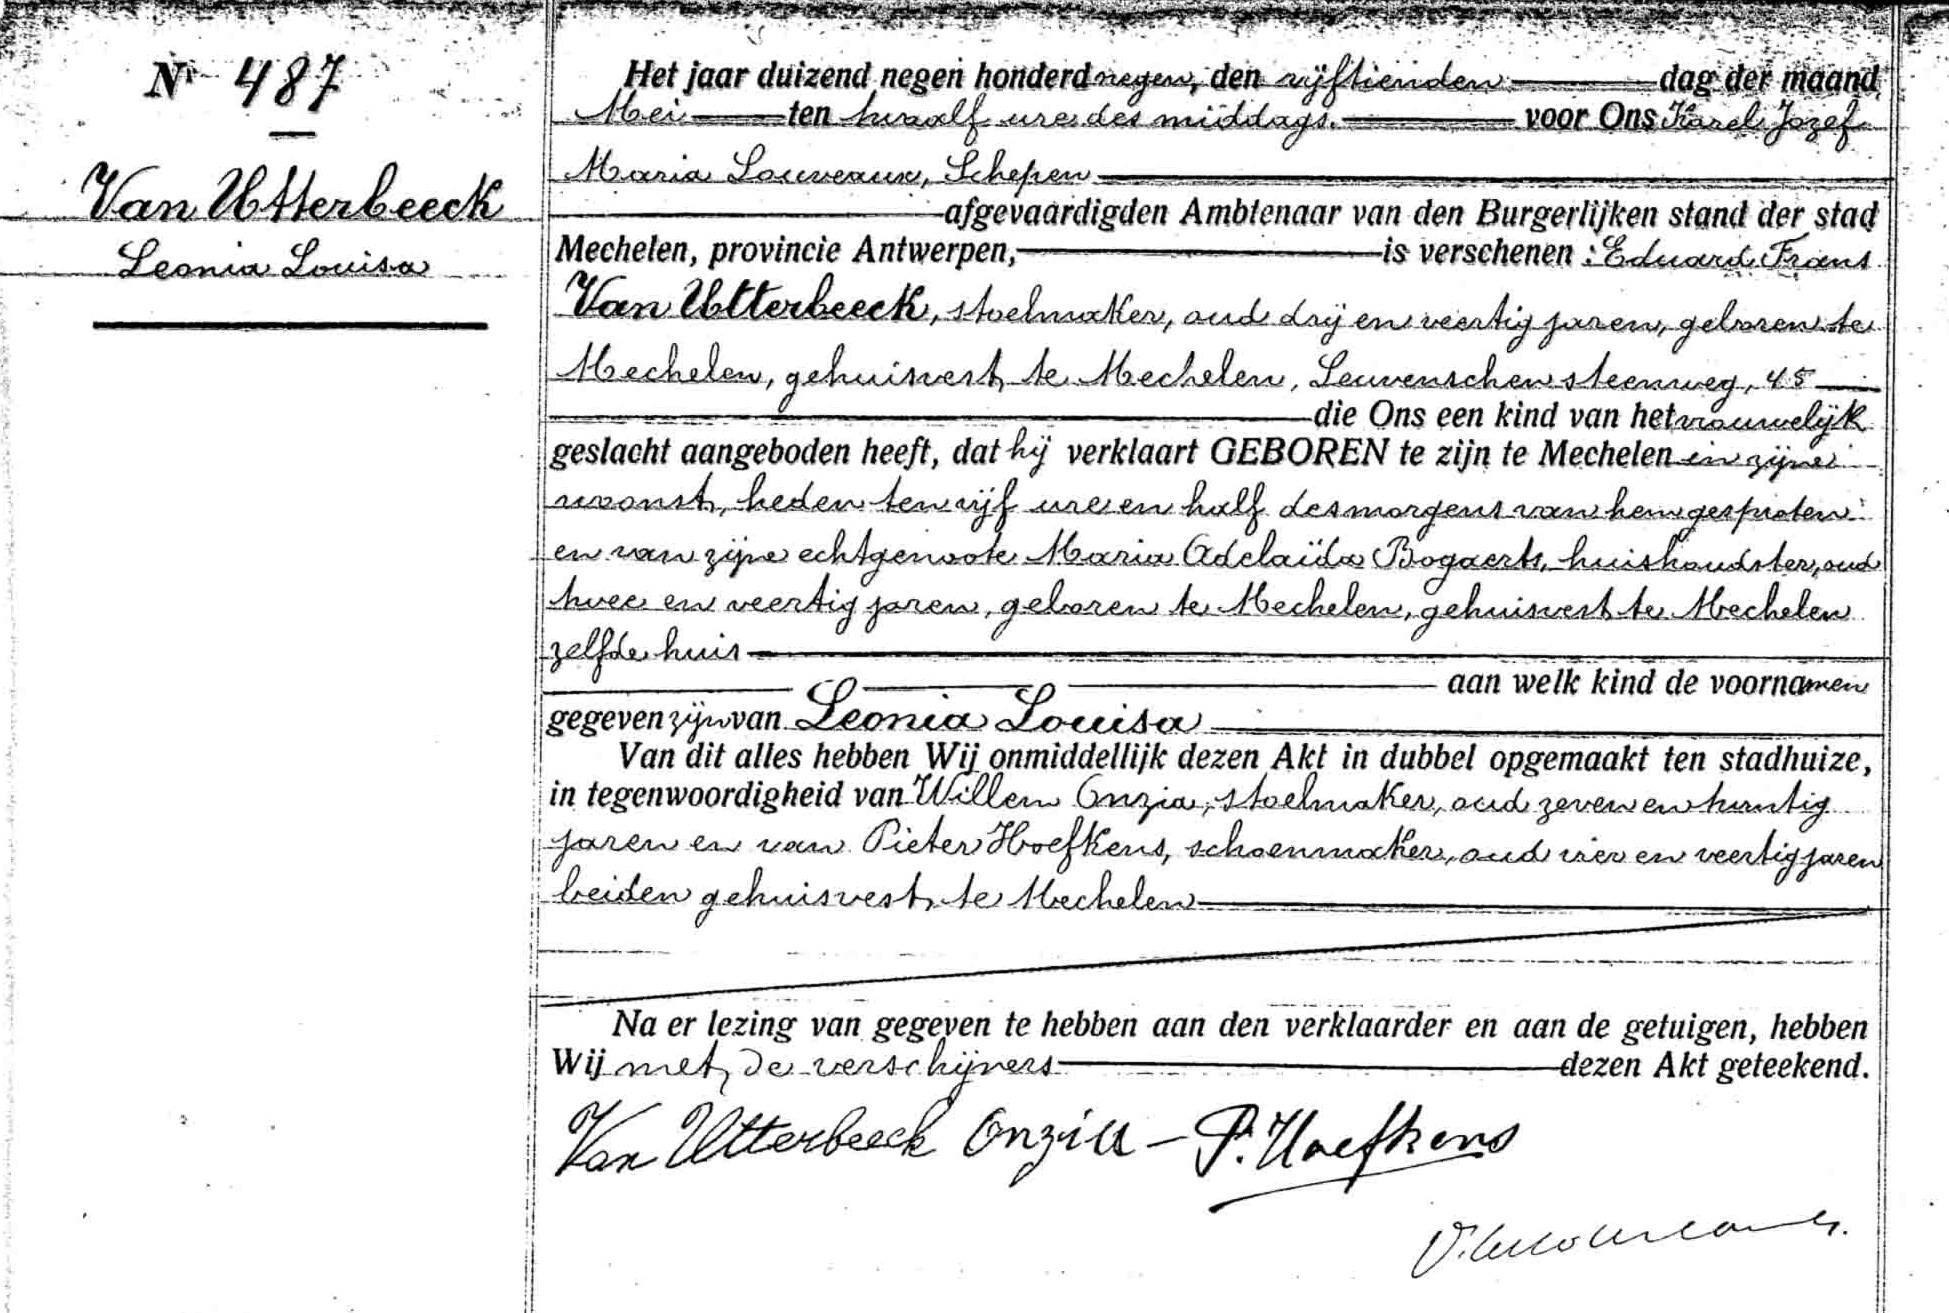 Nr 487
Van Utterbeeck
Leonia Louisa
Het jaar duizend negen honderd negen, den vijftienden dag der maand
Mei ten twaalf ure des middags. voor Ons Karel Jozef
Maria Louveaux, Schepen
afgevaardigden Ambtenaar van den Burgerlijken stand der stad
Mechelen, provincie Antwerpen, is verschenen : Eduard Frans
Van Utterbeeck, stoelmaker, oud drij en veertig jaren, geboren te
Mechelen, gehuisvest te Mechelen, Leuvenschen steenweg, 45
die Ons een kind van het vrouwelijk
geslacht aangeboden heeft, dat hij verklaart GEBOREN te zijn te Mechelen in zijne
woonst, heden ten vijf ure en half des morgens van hem gesproten
en van zijne echtgenoote Maria Adelaïda Bogaerts, huishoudster, oud
twee en veertig jaren, geboren te Mechelen, gehuisvest te Mechelen
zelfde huis
aan welk kind de voornamen
gegeven zijn van Leonia Louisa
Van dit alles hebben Wij onmiddellijk dezen Akt in dubbel opgemaakt ten stadhuize,
in tegenwoordigheid van Willem Onzia, stoelmaker, oud zeven en twintig
jaren en van Pieter Hoefkens, schoenmaker, oud vier en veertig jaren
beiden gehuisvest te Mechelen
Na er lezing van gegeven te hebben aan den verklaarder en aan de getuigen, hebben
Wij met de verschijners dezen Akt geteekend.
Van Utterbeeck Onzia — P. Hoefkens